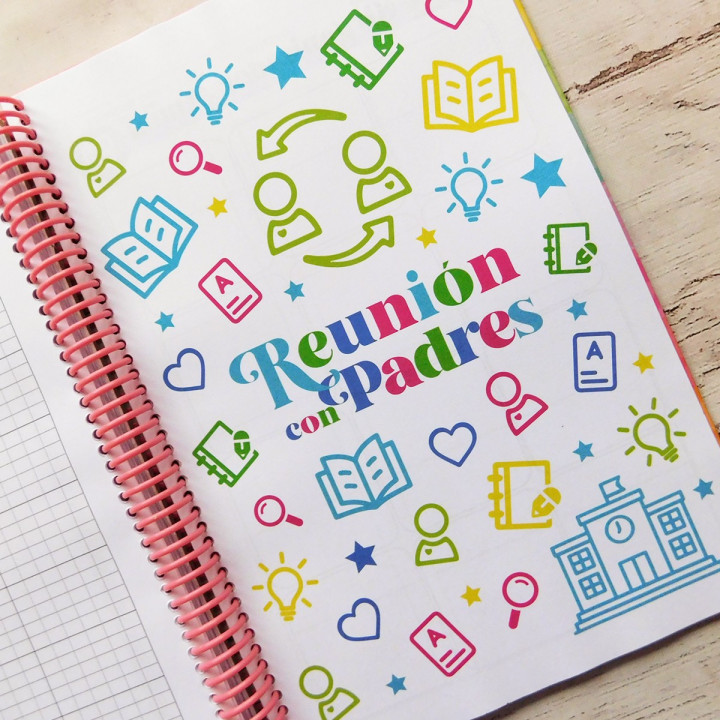 A
Reunión
con padres
A
A